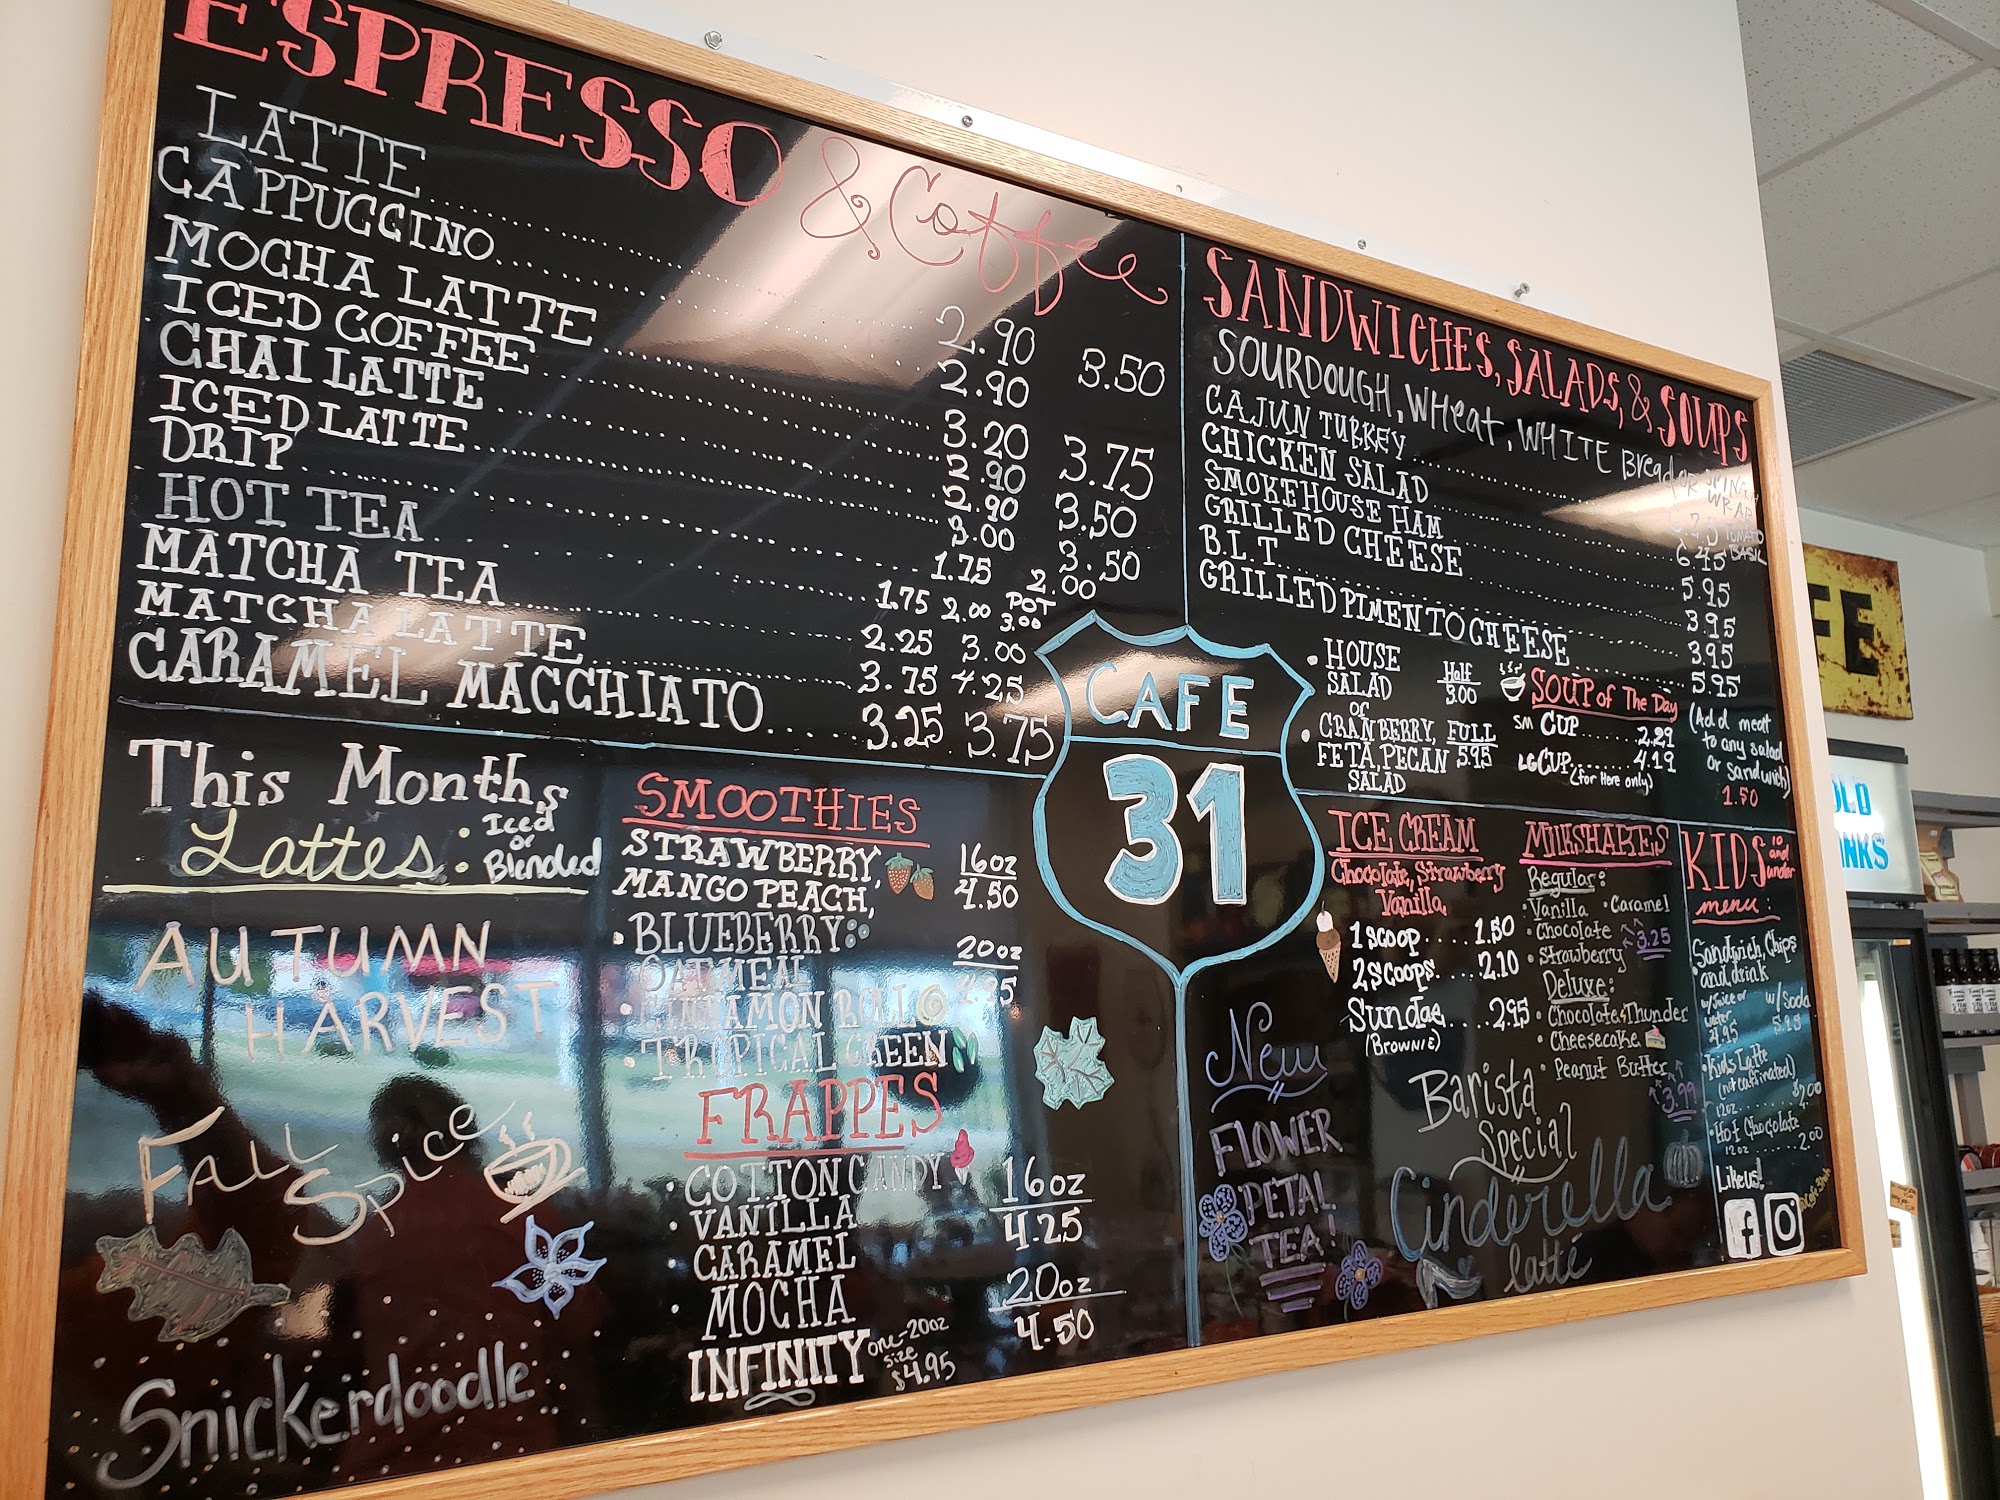 ESPRESSO & Coffee
LATTE 2.90 3.50
CAPPUCCINO 2.90
MOCHA LATTE 3.20 3.75
ICED COFFEE 2.90 3.50
CHAI LATTE 2.90 3.50
ICED LATTE 3.00
DRIP 1.75 2.00
HOT TEA 1.75 2.00 POT 3.00
MATCHA TEA 2.25 3.00
MATCHA LATTE 3.75 4.25
CARAMEL MACCHIATO 3.25 3.75
This Months
Lattes: Iced
or
Blended
AUTUMN
HARVEST
FALL
Spice
Snickerdoodle
SMOOTHIES
STRAWBERRY,
MANGO PEACH,
• BLUEBERRY
OATMEAL
• CINNAMON ROLL
• TROPICAL GREEN
16oz
4.50
20oz
FRAPPES
• COTTON CANDY
• VANILLA
CARAMEL
• MOCHA
16oz
4.25
20oz
4.50
INFINITY one-20oz
size
$4.95
CAFE
31
SANDWICHES, SALADS, & SOUPS
SOURDOUGH, WHeat, WHITE Bread or SPINACH
OR WRAP
TOMATO
BASIL
CAJUN TURKEY
CHICKEN SALAD 6.45
SMOKEHOUSE HAM 5.95
GRILLED CHEESE 3.95
B.L.T. 3.95
GRILLED PIMENTO CHEESE 5.95
• HOUSE
SALAD
or
• CRANBERRY,
FETA, PECAN
SALAD
Half
3.00
FULL
5.95
SOUP of The Day
SM CUP 2.29
LG CUP 4.19
(for Here only)
(Add meat
to any salad
or sandwich)
1.50
ICE CREAM
Chocolate, Strawberry
Vanilla
1 SCOOP .... 1.50
2 SCOOPS. ... 2.10
Sundae .... 2.95
(BROWNIE)
MILKSHAKES
Regular:
• Vanilla • Caramel
• Chocolate 3.25
• Strawberry
Deluxe:
• Chocolate Thunder
• Cheesecake
• Peanut Butter
3.99
New
FLOWER
PETAL
TEA!
Barista
Special
Cinderella
latté
KIDS 10 and under
menu:
Sandwich, Chips
and drink
w/Juice or
water
4.95
w/soda
5.15
• Kids Latte
(not caffinated)
12oz $2.00
• Hot Chocolate
12oz 2.00
Like us!
f